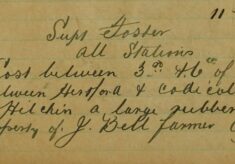 11
Supt Foster
All Stations
Lost between 3rd & 6th of
between Hertford & Codicot
Hitchin a large rubber
property of J. Bell farmer